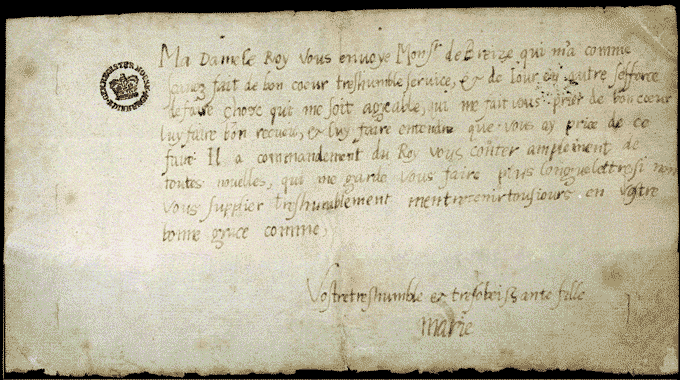 Ma Dame le Roy vous envoye Monsr de Breize qui m'a comme
scavez fait de bon coeur treshumble service, & de Jour en autre sefforce
de faire chose qui me soit agreable, qui me fait vous prier de bon coeur
luy faire bon recueil, & luy faire entendre que vous ay priee de ce
faire Il a commandement du Roy vous conter amplement de
toutes nouelles, qui me garde vous faire plus longue lettre si non
vous supplier treshumblement mentretenir tousiours en vostre
bonne grace comme,
Vostre treshumble & tresobeissante fille
Marie